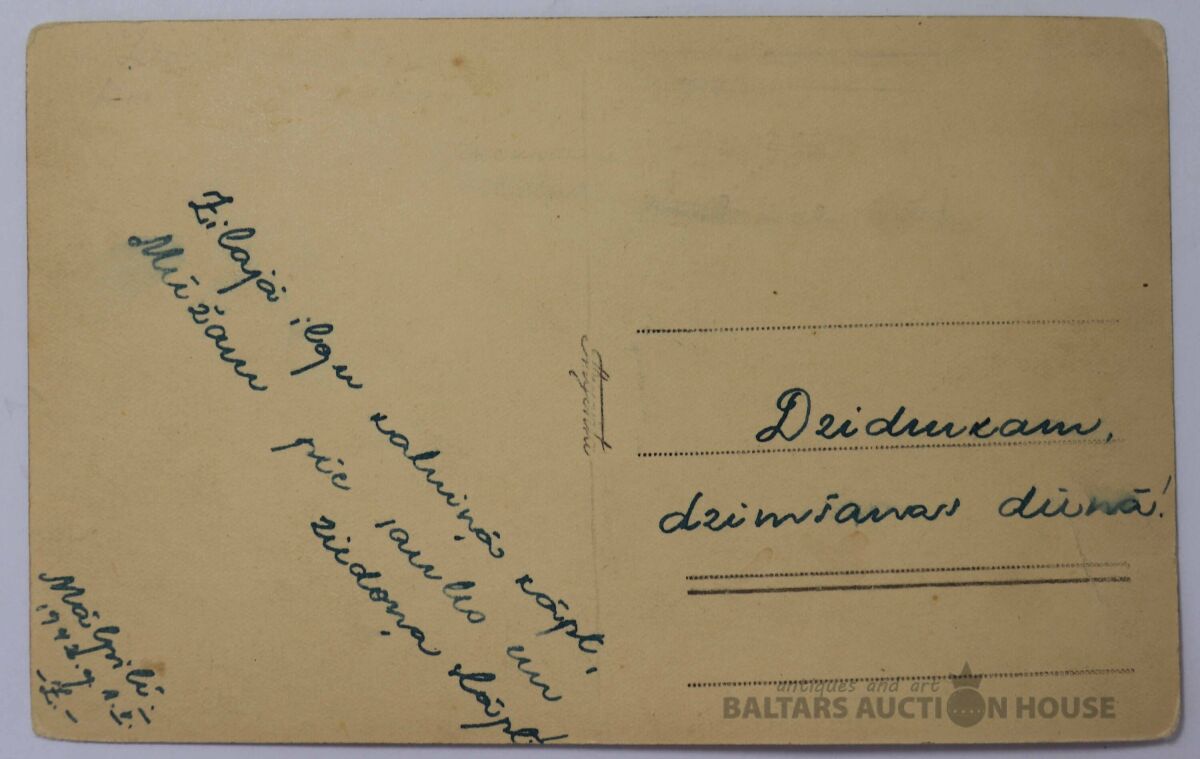 Zilajā ilgu kalniņā kāpt,
Mūžam pie saules un
ziedoņa slāpt.
Mālpilī
194
-Z.-
Dzidrukam,
dzimšanas dienā!
antiques and art
BALTARS AUCTION HOUSE